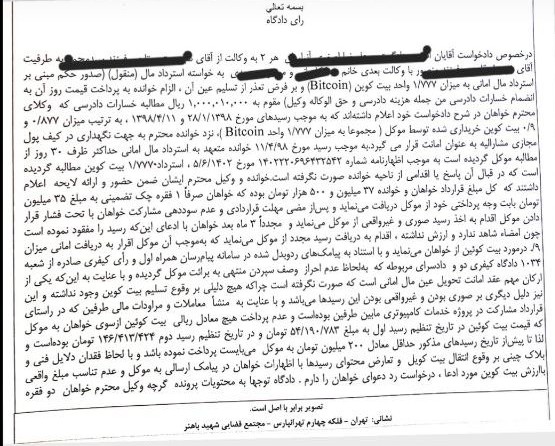 بسمه تعالی
رای دادگاه
درخصوص دادخواست آقایان هر ۲ به وکالت از آقای به طرفیت
آقای با وکالت بعدی خانم به خواسته استرداد مال (منقول) (صدور حکم مبنی بر
استرداد مال امانی به میزان ۱/۷۷۷ واحد بیت کوین (Bitcoin) و بر فرض تعذر از تسلیم عین آن ، الزام خوانده به پرداخت قیمت روز آن به
انضمام خسارات دادرسی من جمله هزینه دادرسی و حق الوکاله وکیل) مقوم به ۱,۰۰۰,۰۱۰,۰۰۰ ریال مطالبه خسارات دادرسی که وکلای
محترم خواهان در شرح دادخواست خود اعلام داشته‌اند که به موجب رسیدهای مورخ ۲۸/۱/۱۳۹۸ و ۱۳۹۸/۴/۱۱ به ترتیب میزان ۰/۸۷۷ و
۰/۹ بیت کوین خریداری شده توسط موکل (مجموعا به میزان ۱/۷۷۷ واحد Bitcoin )، نزد خوانده محترم به جهت نگهداری در کیف پول
مجازی مشارالیه به عنوان امانت قرار می گیرد.به موجب رسید مورخ ۱۱/۴/۹۸ خوانده متعهد به استرداد مال امانی حداکثر ظرف ۳۰ روز از
مطالبه موکل گردیده است به موجب اظهارنامه شماره ۱۴۰۲۲۲۰۶۹۶۴۳۲۵۴۲ مورخ ۵/۶/۱۴۰۲ ، استرداد۱/۷۷۷۰ بیت کوین مطالبه گردیده
است که در قبال آن پاسخ یا اقدامی از ناحیه خوانده صورت نگرفته است.خوانده و وکیل محترم ایشان ضمن حضور و ارائه لایحه اعلام
داشتند که کل مبلغ قرارداد خواهان و خوانده ۳۷ میلیون و ۵۰۰ هزار تومان بوده که خواهان صرفاً ۱ فقره چک تضمینی به مبلغ ۳۵ میلیون
تومان بابت وجه پرداختی خود از موکل دریافت می‌نماید و پس‌از مضی مهلت قراردادی و عدم سوددهی مشارکت خواهان با تحت فشار قرار
دادن موکل اقدام به اخذ رسید صوری و غیرواقعی از موکل می‌نماید و مجدداً ۳ ماه بعد خواهان با ادعای این‌که رسید را مفقود نموده است
چون امضاء شاهد ندارد و ارزش نداشته ، اقدام به دریافت رسید مجدد از موکل می‌نماید که‌به‌موجب آن موکل اقرار به دریافت امانی میزان
۹/. درمورد بیت کوئین از خواهان می‌نماید و با استناد به پیامک‌های ردوبدل شده در سامانه پیام‌رسان همراه اول و رأی کیفری صادره از شعبه
۱۰۳۴ دادگاه کیفری دو و دادسرای مربوطه که به‌لحاظ عدم احراز وصف سپردن منتهی به برائت موکل گردیده و با عنایت به این‌که یکی از
ارکان مهم عقد امانت تحویل عین مال امانی است که صورت نگرفته است چراکه هیچ دلیلی بر وقوع تسلیم بیت کوین وجود نداشته و این
نیز دلیل دیگری بر صوری بودن و غیرواقعی بودن این رسیدها می‌باشد و با عنایت به منشأ معاملات و مراودات مالی طرفین که در راستای
قرارداد مشارکت در پروژه خدمات کامپیوتری مابین طرفین بوده‌است و عدم پرداخت هیچ معادل ریالی بیت کوئین ازسوی خواهان به موکل
که قیمت بیت کوئین در تاریخ تنظیم رسید اول به مبلغ ۵۴/۱۹۰/۷۸۳ تومان و در تاریخ تنظیم رسید دوم ۱۴۶/۴۱۳/۴۲۴ تومان بوده‌است و
لذا تا پیش‌از تاریخ رسیدهای مذکور حداقل معادل ۲۰۰ میلیون تومان به موکل می‌بایست پرداخت نموده باشد و با لحاظ فقدان دلایل فنی و
بلاک چینی بر وقوع انتقال بیت کویل و تعارض محتوای رسیدها با اظهارات خواهان در پیامک ارسالی به موکل و عدم تناسب مبلغ واقعی
باارزش بیت کوین مورد ادعا ، درخواست رد دعوای خواهان را دارم . دادگاه توجها به محتویات پرونده گرچه وکیل محترم خواهان دو فقره
تصویر برابر با اصل است.
نشانی: تهران - فلکه چهارم تهرانپارس - مجتمع قضایی شهید باهنر